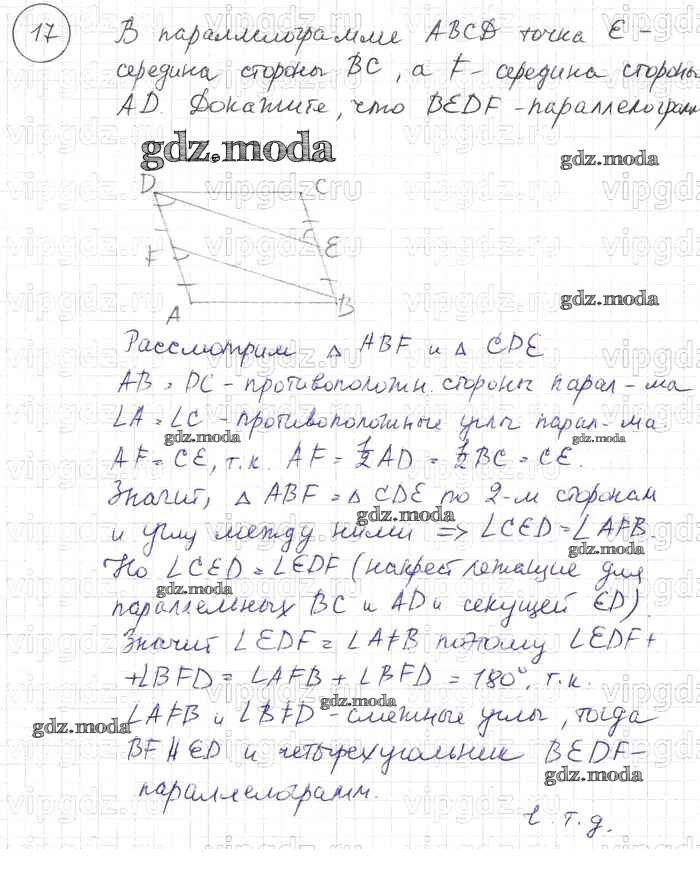 17
В параллелограмме ABCD точка E -
середина стороны BC, а F - середина стороны
AD. Докажите, что BEDF - параллелограм
gdz.moda
gdz.moda
D C
F E
A B
gdz.moda
Рассмотрим △ ABF и △ CDE
AB = DC - противоположн. стороны парал-ма
∠A = ∠C - противоположные углы парал-ма.
gdz.moda gdz.moda
AF = CE, т.к. AF = 1/2 AD = 1/2 BC = CE.
Значит, △ ABF = △ CDE по 2-м сторонам
gdz.moda
и углу между ними => ∠CED = ∠AFB.
gdz.moda
Но ∠CED = ∠EDF (накрест лежащие для
gdz.moda
параллельных BC и AD и секущей ED)
Значит ∠EDF = ∠AFB поэтому ∠EDF +
+ ∠BFD = ∠AFB + ∠BFD = 180°, т.к.
gdz.moda
∠AFB и ∠BFD - смежные углы, тогда
gdz.moda
BF ∥ ED и четырехугольник BEDF -
gdz.moda
параллелограмм.
ч.т.д.